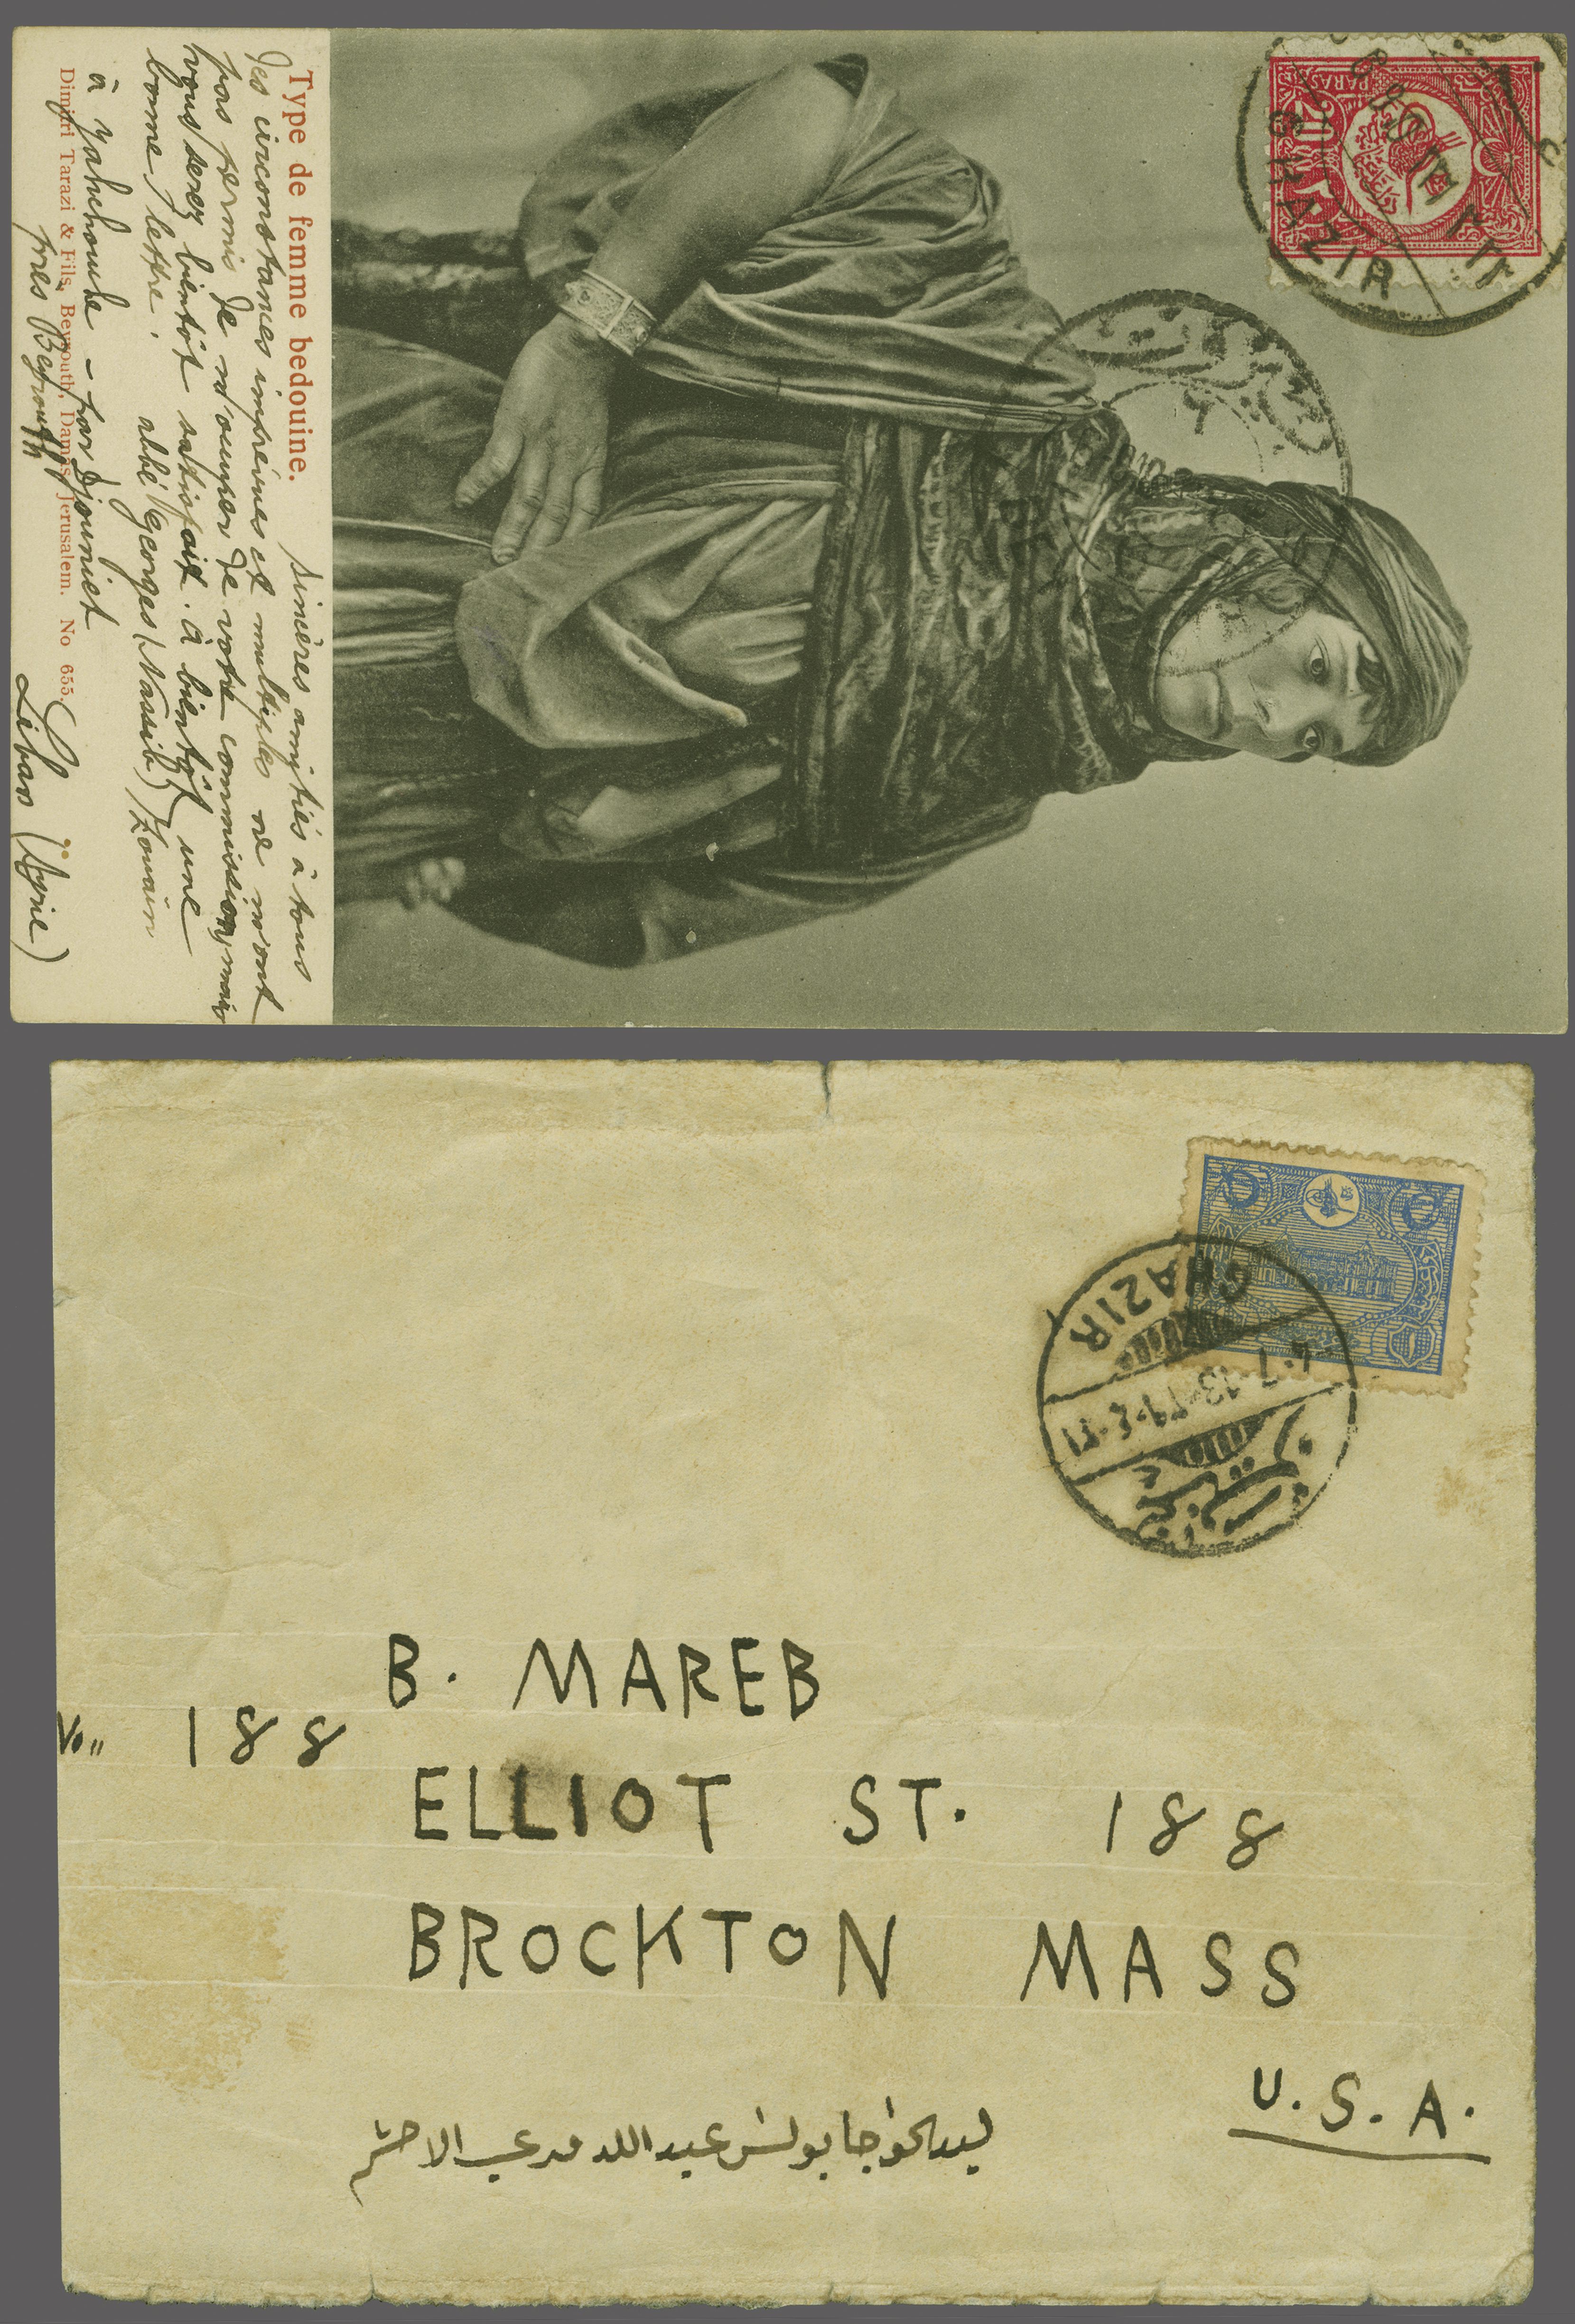 Type de femme bedouine.
Sincères amitiés à tous
Des circonstances imprévues et multiples ne m'ont
pas permis de m'occuper de votre commission, mais
vous serez bientôt satisfait. à bientôt une
bonne lettre. abbé Georges (Nassib) Zouain
à Yahchouche - par Djouniet
Dimitri Tarazi & Fils, Beyrouth, Damas, Jerusalem. No 655.
près Beyrouth
Liban (Syrie)
PARAS
20
GHAZIR
GHAZIR
4-7-13
B. MAREB
No 188
ELLIOT ST. 188
BROCKTON MASS
U.S.A.
ليد الخواجا بولس عبدالله مرعب الاحشم